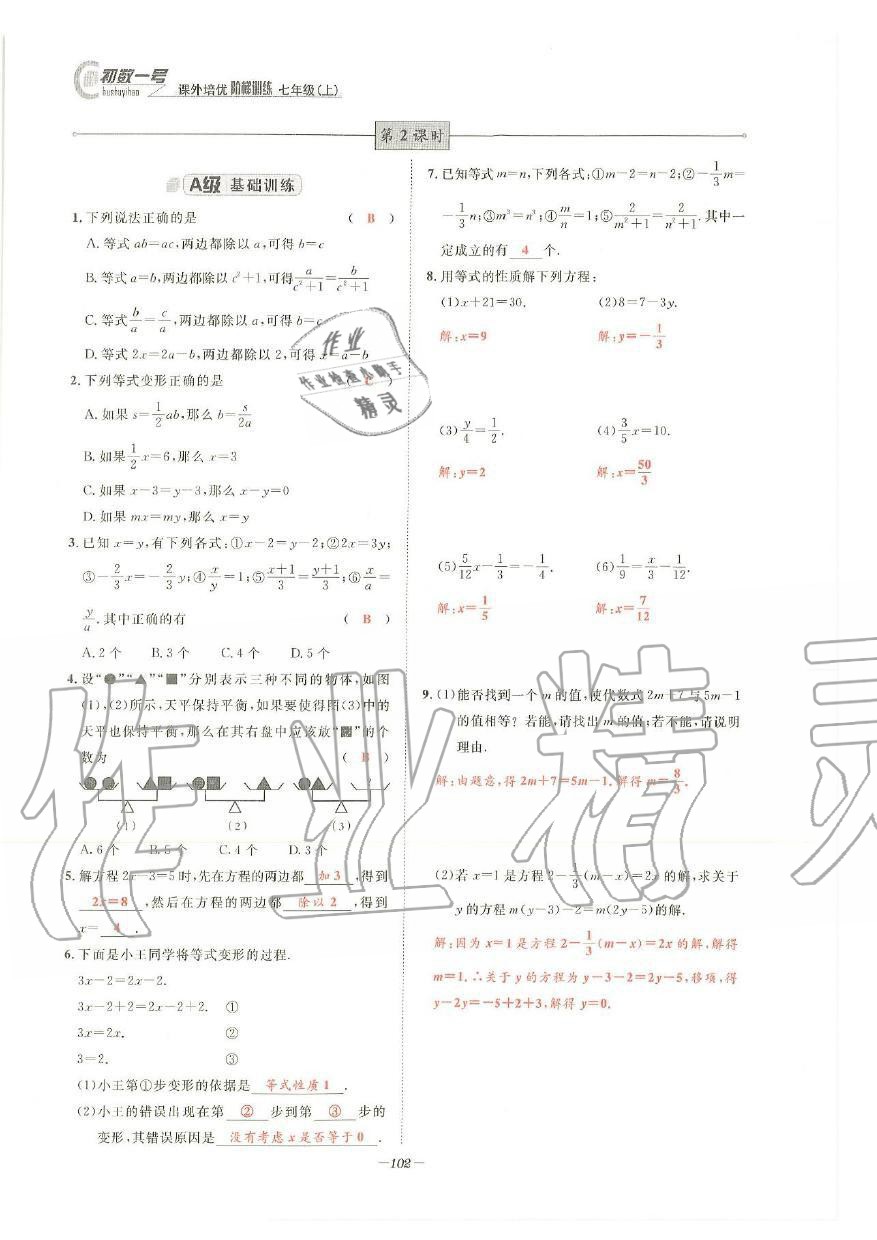 初数一号
hushuyihao
课外培优 阶梯训练 七年级(上)
第 2 课时
A级 基础训练
1. 下列说法正确的是 ( B )
A. 等式 ab=ac,两边都除以 a,可得 b=c
B. 等式 a=b,两边都除以 c²+1,可得 a/(c²+1) = b/(c²+1)
C. 等式 b/a = c/a,两边都除以 a,可得 b=c
D. 等式 2x=2a-b,两边都除以 2,可得 x=a-b
2. 下列等式变形正确的是 ( C )
A. 如果 s=1/2 ab,那么 b=s/2a
B. 如果 1/2 x=6,那么 x=3
C. 如果 x-3=y-3,那么 x-y=0
D. 如果 mx=my,那么 x=y
3. 已知 x=y,有下列各式:①x-2=y-2;②2x=3y;
③-2/3 x=-2/3 y;④x/y=1;⑤(x+1)/3=(y+1)/3;⑥x/a=
y/a.其中正确的有 ( B )
A. 2 个 B. 3 个 C. 4 个 D. 5 个
4. 设“●”“▲”“■”分别表示三种不同的物体,如图
(1),(2)所示,天平保持平衡,如果要使得图(3)中的
天平也保持平衡,那么在其右盘中应该放“■”的个
数为 ( B )
(1) (2) (3)
A. 6 个 B. 5 个 C. 4 个 D. 3 个
5. 解方程 2x-3=5 时,先在方程的两边都 加 3 ,得到
2x=8 ,然后在方程的两边都 除以 2 ,得到
x= 4 .
6. 下面是小王同学将等式变形的过程.
3x-2=2x-2.
3x-2+2=2x-2+2. ①
3x=2x. ②
3=2. ③
(1)小王第①步变形的依据是 等式性质 1 .
(2)小王的错误出现在第 ② 步到第 ③ 步的
变形,其错误原因是 没有考虑 x 是否等于 0 .
7. 已知等式 m=n,下列各式:①m-2=n-2;②-1/3 m=
-1/3 n;③m³=n³;④m/n=1;⑤2/(m²+1)=2/(n²+1).其中一
定成立的有 4 个.
8. 用等式的性质解下列方程:
(1)x+21=30. (2)8=7-3y.
解:x=9 解:y=-1/3
(3)y/4=1/2. (4)3/5 x=10.
解:y=2 解:x=50/3
(5)5/12 x-1/3=-1/4. (6)1/9=x/3-1/12.
解:x=1/5 解:x=7/12
9. (1)能否找到一个 m 的值,使代数式 2m+7 与 5m-1
的值相等?若能,请找出 m 的值;若不能,请说明
理由.
解:由题意,得 2m+7=5m-1.解得 m=8/3.
(2)若 x=1 是方程 2-1/3(m-x)=2x 的解,求关于
y 的方程 m(y-3)-2=m(2y-5)的解.
解:因为 x=1 是方程 2-1/3(m-x)=2x 的解,解得
m=1.∴关于 y 的方程为 y-3-2=2y-5,移项,得
y-2y=-5+2+3,解得 y=0.
作业
作业检查小助手
精灵
作业精灵
-102-